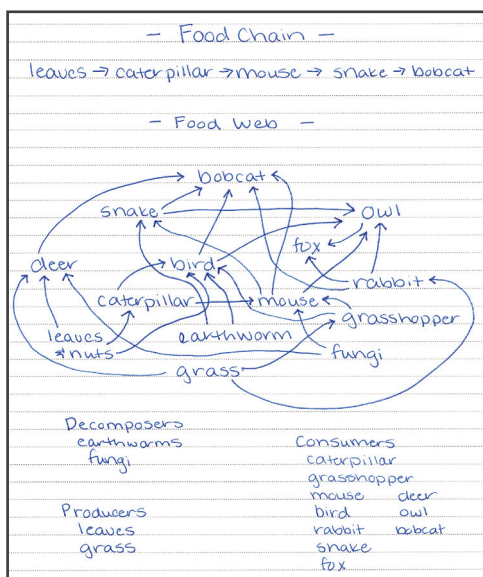 - Food Chain -
leaves → caterpillar → mouse → snake → bobcat
- Food Web -
bobcat
snake owl
fox
deer bird rabbit
caterpillar mouse grasshopper
leaves earthworm
& nuts fungi
grass
Decomposers
earthworms
fungi
Producers
leaves
grass
Consumers
caterpillar
grasshopper
mouse deer
bird owl
rabbit bobcat
snake
fox